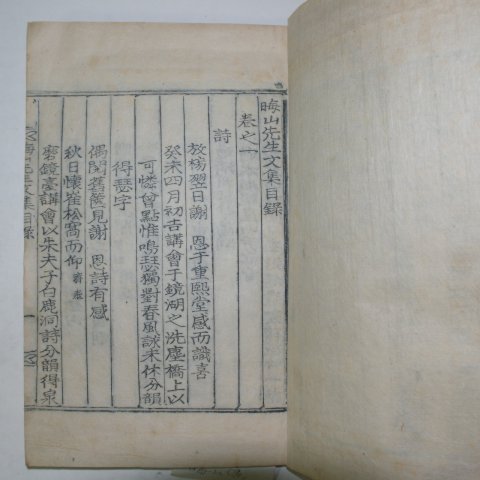 晦山先生文集目錄
卷之一
詩
放榜翌日謝 恩于重熙堂感而識喜
癸未四月初吉講會于鏡湖之洗塵橋上以
可憐曾點惟鳴瑟獨對春風詠未休分韻
得瑟字
偶閱舊篋見謝 恩詩有感
秋日懷崔松窩而仰
磨鏡臺講會以朱夫子白鹿洞詩分韻得泉